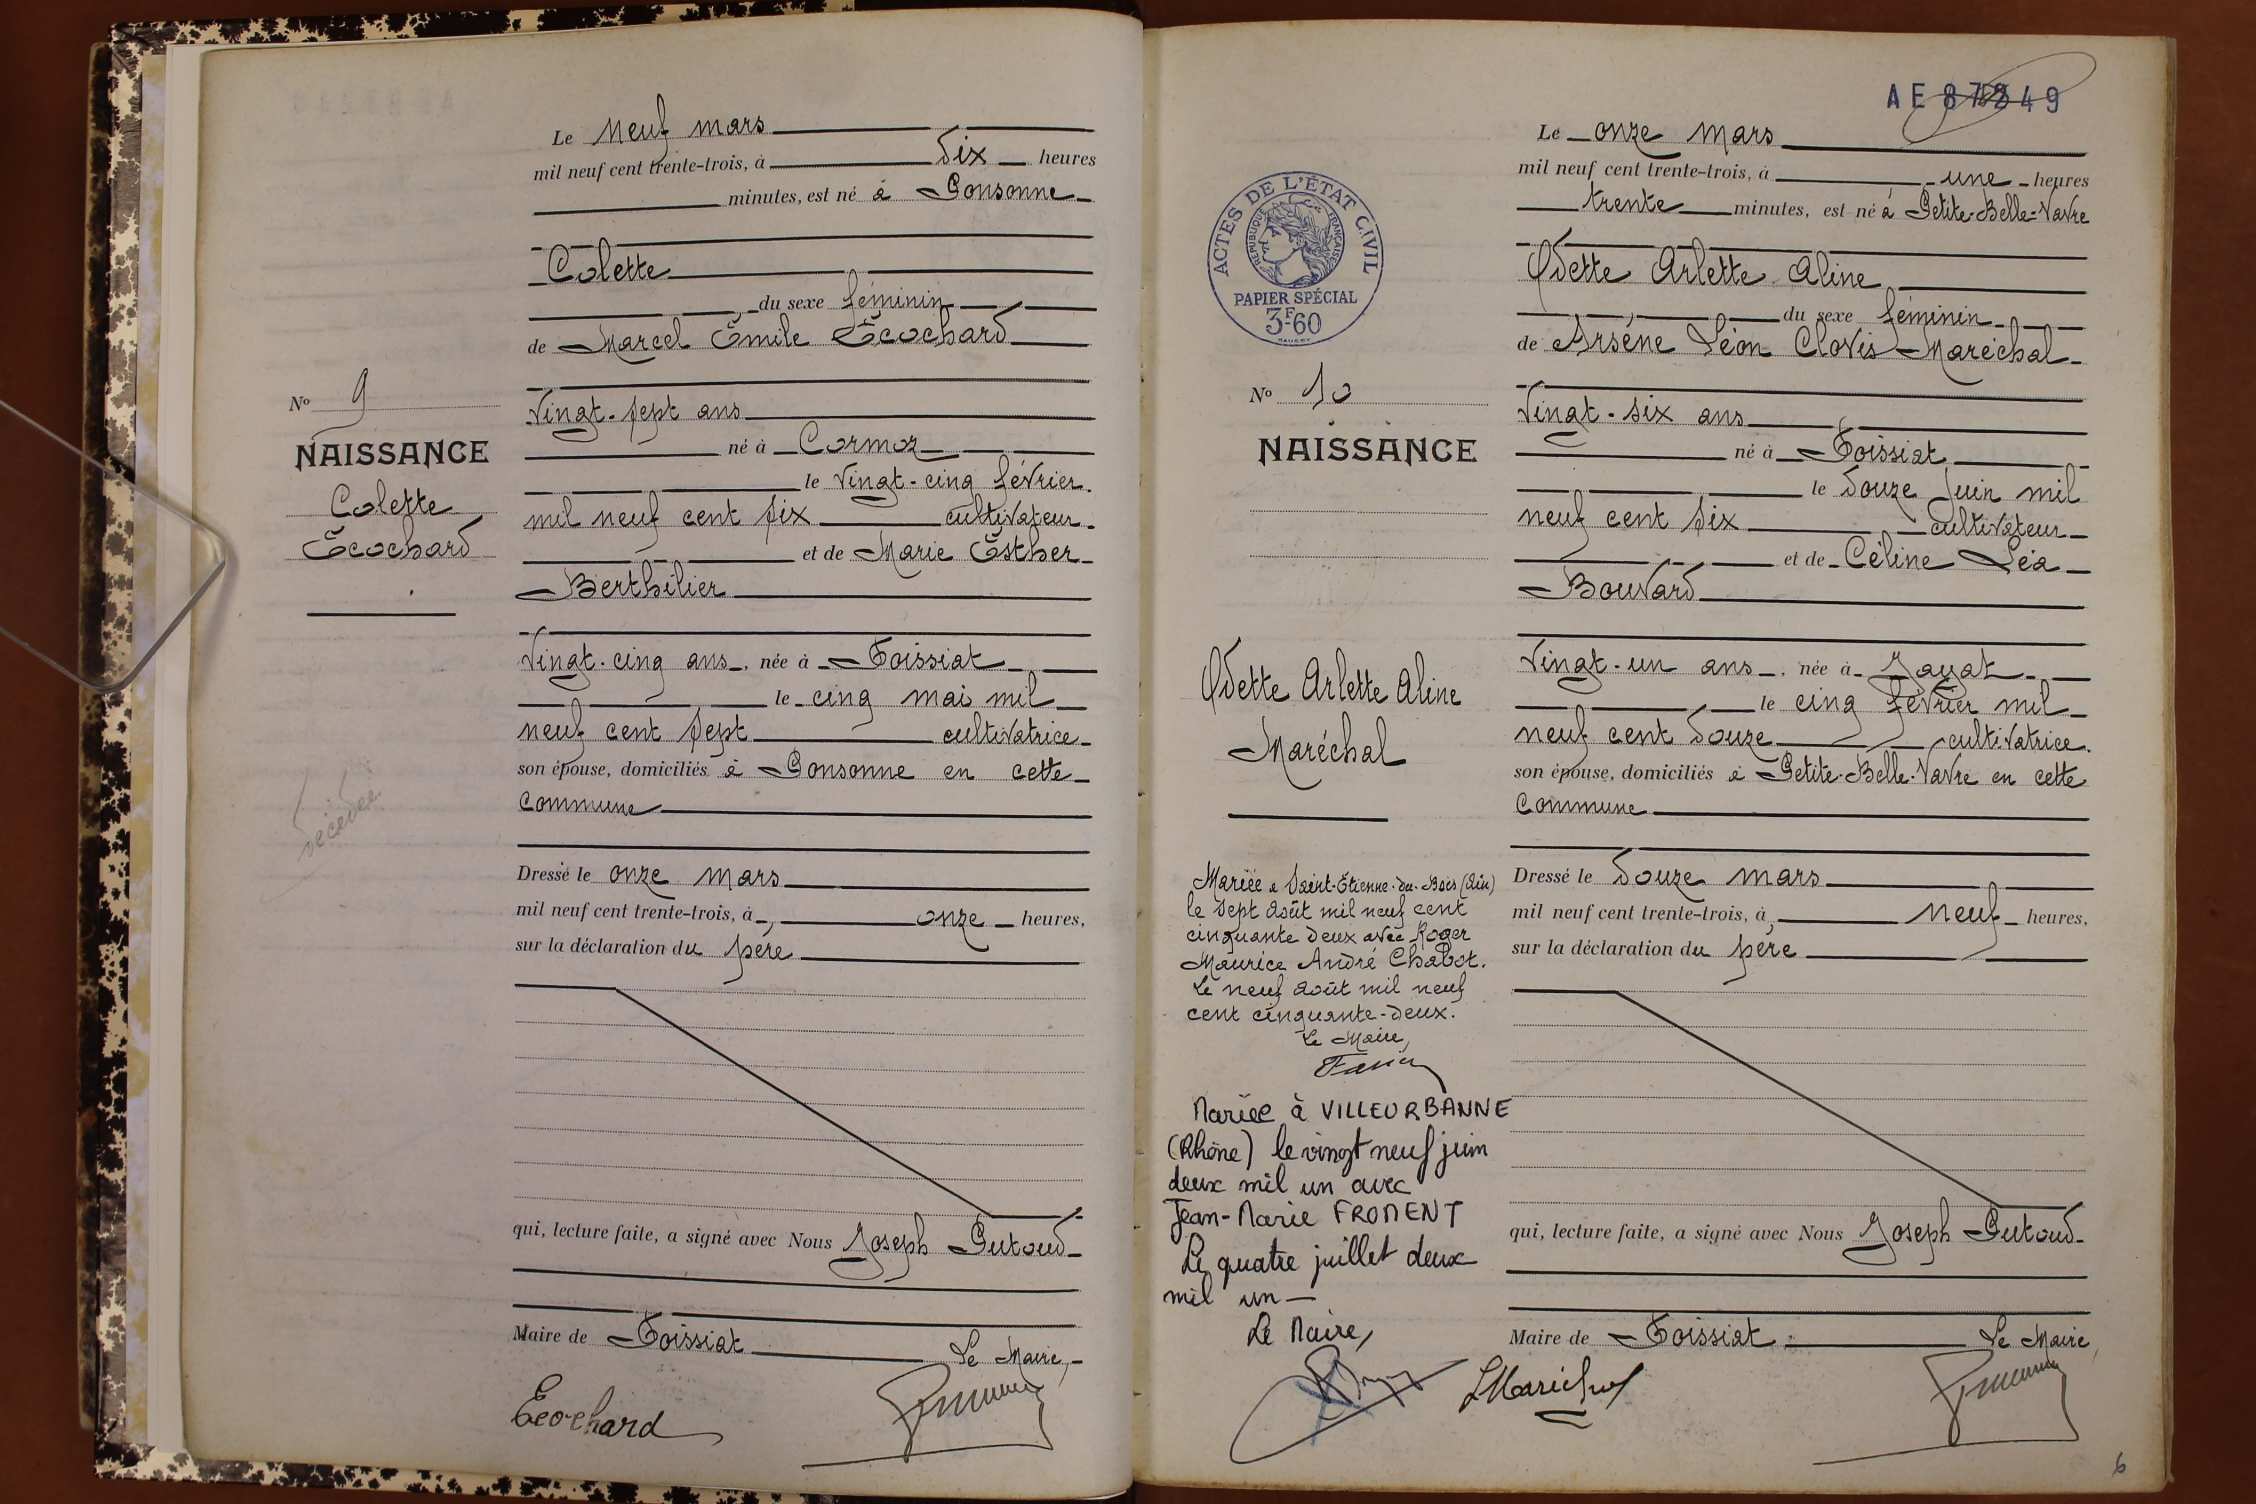 Le neuf mars
mil neuf cent trente-trois, à dix heures
minutes, est né à Consonne
Colette
du sexe féminin
de Marcel Émile Écochard
vingt-sept ans
né à Cormoz
le vingt-cinq février
mil neuf cent six cultivateur
et de Marie Esther
Berthilier
vingt-cinq ans, née à Foissiat
le cinq mai mil
neuf cent sept cultivatrice
son épouse, domiciliés à Consonne en cette
commune
Dressé le onze mars
mil neuf cent trente-trois, à onze heures,
sur la déclaration du père
qui, lecture faite, a signé avec Nous Joseph Putoud
Maire de Foissiat
Le Maire,
Ecochard
No 9
NAISSANCE
Colette
Écochard
décédée
AE 49
Le onze mars
mil neuf cent trente-trois, à une heures
trente minutes, est né à Petite-Belle-Vavre
Odette Arlette Aline
du sexe féminin
de Arsène Léon Clovis Maréchal
vingt-six ans
né à Foissiat
le douze juin mil
neuf cent six cultivateur
et de Céline Léa
Bouvard
vingt-un ans, née à Jayat
le cinq février mil
neuf cent douze cultivatrice.
son épouse, domiciliés à Petite-Belle-Vavre en cette
commune
Dressé le douze mars
mil neuf cent trente-trois, à neuf heures,
sur la déclaration du père
qui, lecture faite, a signé avec Nous Joseph Putoud
Maire de Foissiat
Le Maire,
LMaréchal
ACTES DE L'ÉTAT CIVIL
RÉPUBLIQUE FRANÇAISE
PAPIER SPÉCIAL
3F60
No 10
NAISSANCE
Odette Arlette Aline
Maréchal
Mariée à Saint-Étienne-du-Bois (Ain)
le sept août mil neuf cent
cinquante deux avec Roger
Maurice André Chabot.
Le neuf août mil neuf
cent cinquante-deux.
Le Maire,
Mariée à VILLEURBANNE
(Rhône) le vingt neuf juin
deux mil un avec
Jean-Marie FROMENT
Le quatre juillet deux
mil un —
Le Maire,
6